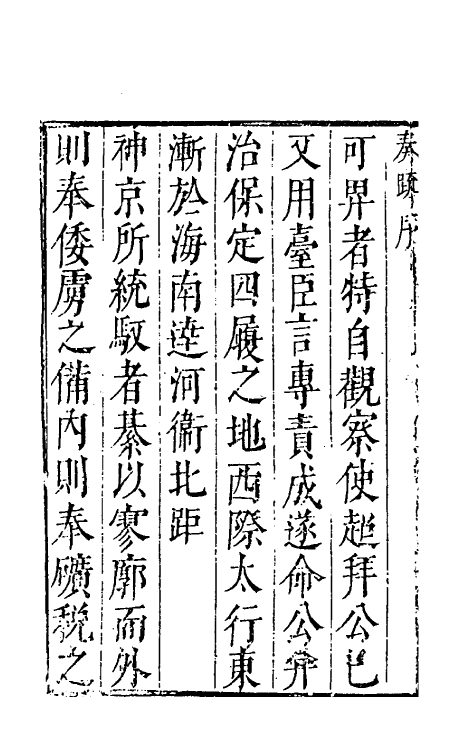 奏疏序
可畀者特自觀察使超拜公已
又用臺臣言專責成遂命公并
治保定四履之地西際太行東
漸於海南達河衞北距
神京所統馭者綦以寥廓而外
則奉倭虜之備内則奉礦稅之